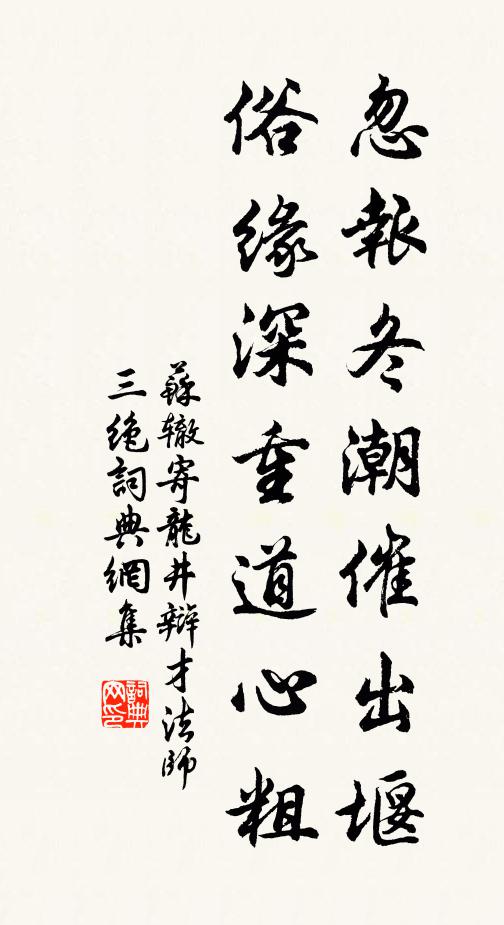 忽報冬潮催出堰
俗緣深重道心粗
蘇轍寄龍井辯才法師
三絕詞典網集
詞典
网印